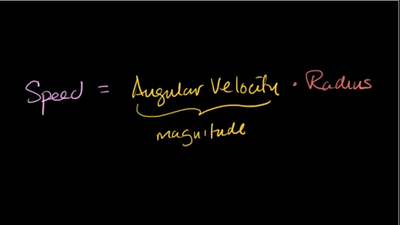 Speed = Angular Velocity · Radius
magnitude